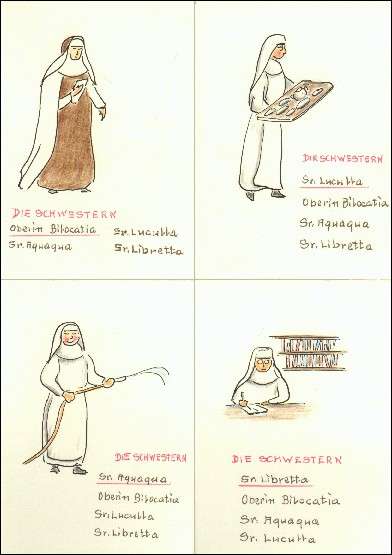 DIE SCHWESTERN
Oberin Bilocatia
Sr. Aquaqua
Sr. Lucutta
Sr. Libretta
DIE SCHWESTERN
Sr. Lucutta
Oberin Bilocatia
Sr. Aquaqua
Sr. Libretta
DIE SCHWESTERN
Sr. Aquaqua
Oberin Bilocatia
Sr. Lucutta
Sr. Libretta
DIE SCHWESTERN
Sr. Libretta
Oberin Bilocatia
Sr. Aquaqua
Sr. Lucutta